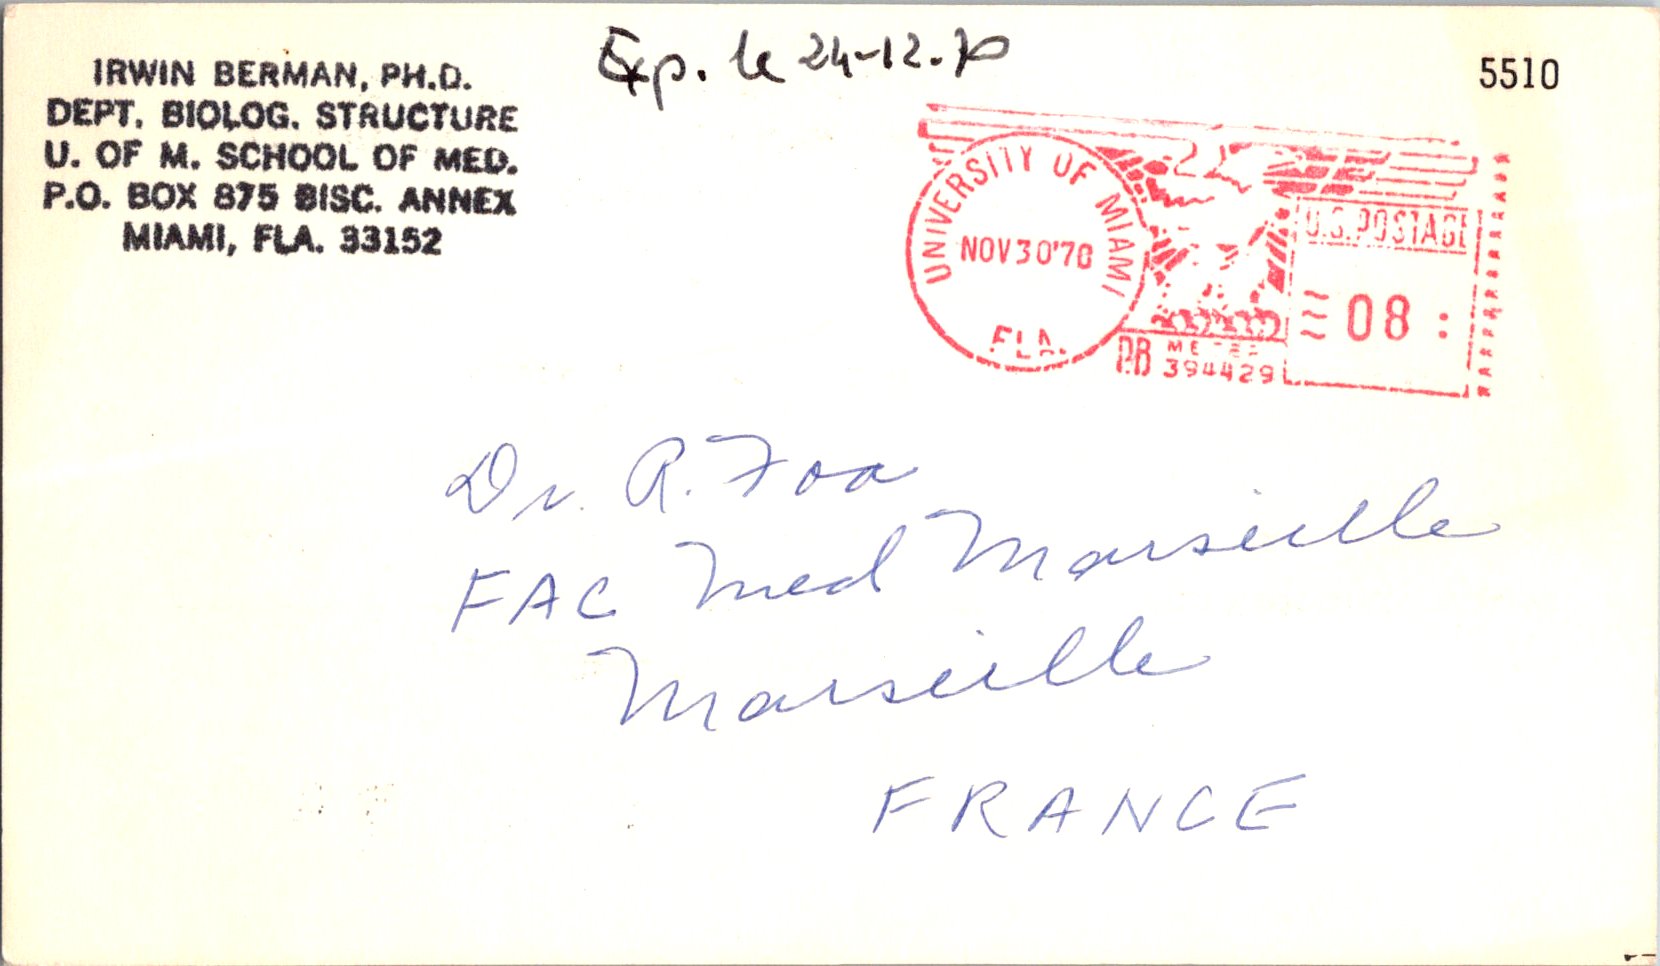 IRWIN BERMAN, PH.D.
DEPT. BIOLOG. STRUCTURE
U. OF M. SCHOOL OF MED.
P.O. BOX 875 BISC. ANNEX
MIAMI, FLA. 33152
Exp. le 24-12.70
5510
UNIVERSITY OF MIAMI
NOV30'70
FLA.
U.S.POSTAGE
08
PB METER
394429
Dr. R. Foa
FAC Med Marseille
Marseille
FRANCE